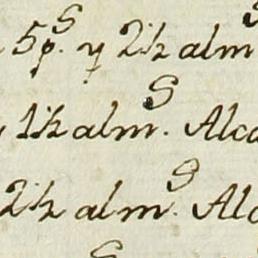 5p.s y 2½ alm.s
1½ alm.s Alca
2½ alm.s Alc